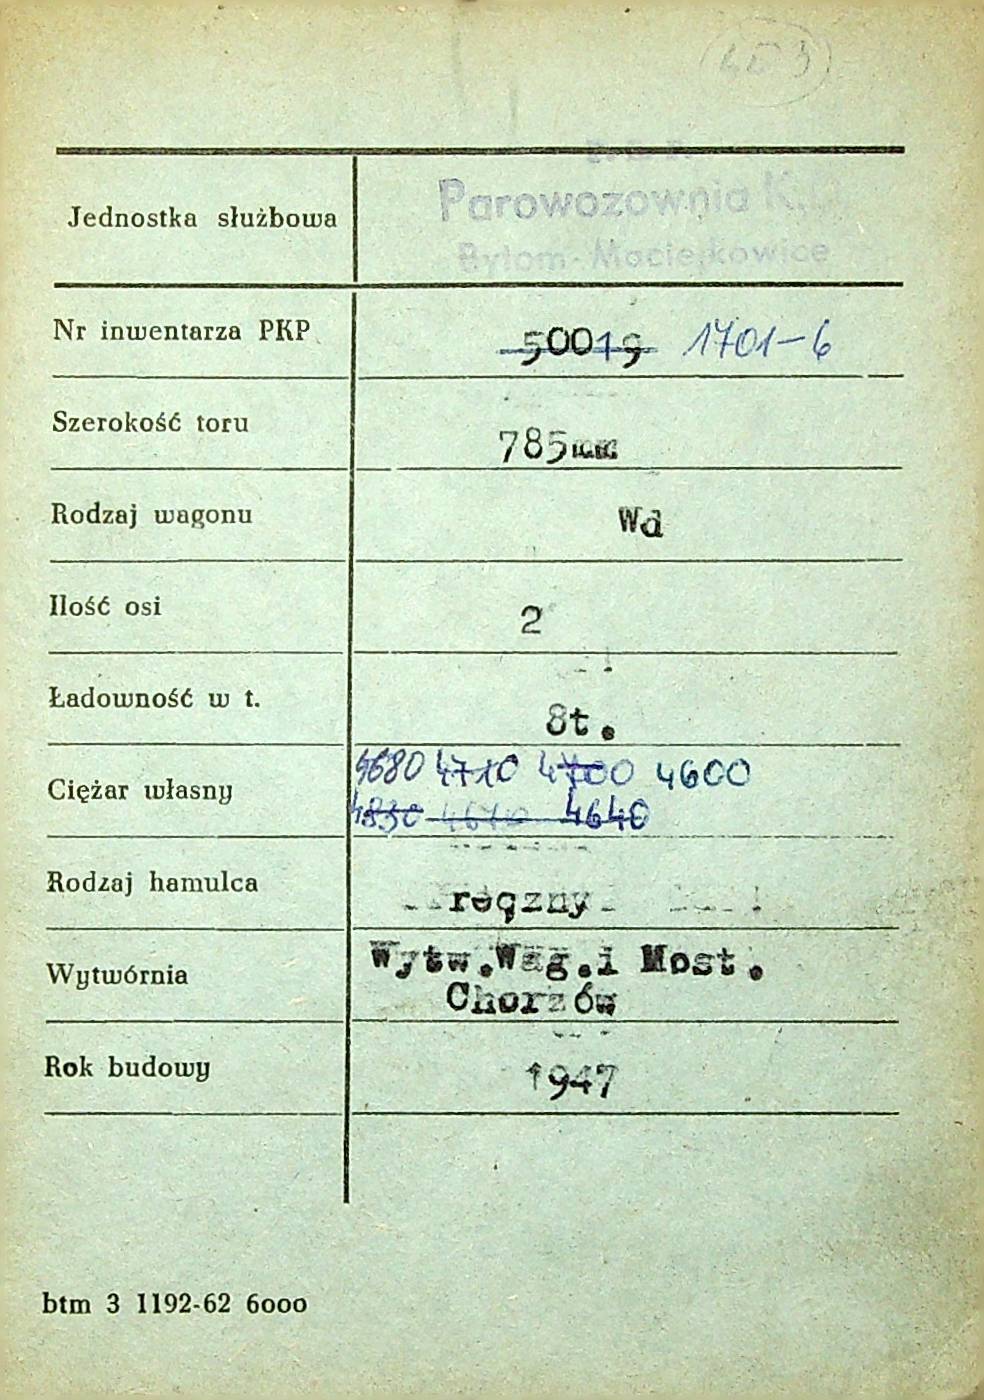 Jednostka służbowa
Parowozownia K.D.
Bytom-Maciejkowice
Nr inwentarza PKP 50019 1701-6
Szerokość toru 785mm
Rodzaj wagonu Wd
Ilość osi 2
Ładowność w t. 8t.
Ciężar własny 4680 4710 4700 4600
4830 4670 4640
Rodzaj hamulca ręczny
Wytwórnia Wytw.Wag.i Most.
Chorzów
Rok budowy 1947
btm 3 1192-62 6ooo